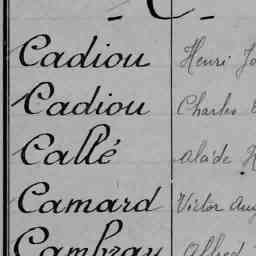 - C. -
Cadiou Henri
Cadiou Charles
Callé Alaide
Camard Victor Aug
Cambray Alfred